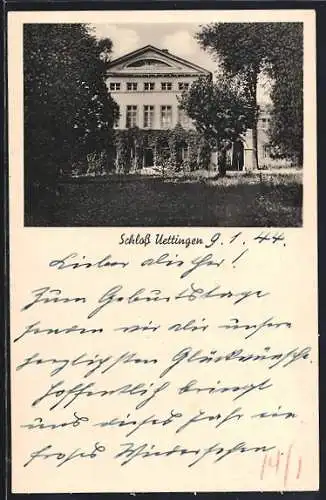 Schloß Uettingen 9.1.44.
Lieber Walther!
Zum Geburtstage
senden wir dir unsere
herzlichsten Glückwünsche.
Hoffentlich bringt
uns dieses Jahr ein
frohes Wiedersehen.
14/1